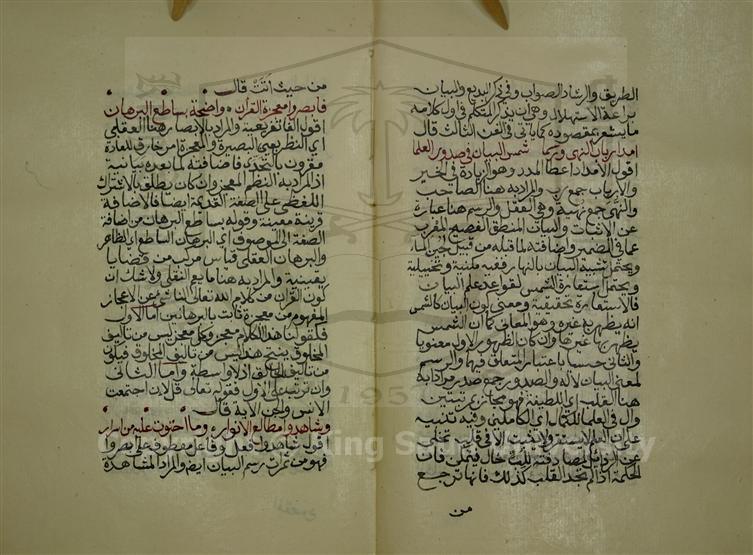 الطريق والرشاد الصواب وفي ذكر البديع والبيان
براعة الاستهلال وهي ان يذكر المتكلم في اول كلامه
ما يشعر بمقصوده كما ياتي في الفن الثالث قال
امد ارباب النهى ورسما شمس البيان في صدور العلما
اقول الامداد اعطا المدد وهو الزيادة في الخير
والارباب جمع رب والمراد به هنا الصاحب
والنهى جمع نهية وهي العقل والرسم هنا عبارة
عن الاثبات والبيان المنطق الفصيح المعرب
عما في الضمير واضافته ما قبله من قبيل لجين الماء
ويحتمل تشبيه البيان بالنهار ففيه مكنية وتخييلية
ويحتمل استعارة الشمس لقواعد علم البيان
فالاستعارة تحقيقية ومعنى كون البيان كالشمس
انه يظهر به غيره وهو المعاني كما ان الشمس
يظهر بها غيرها وان كان الظهور الاول معنويا
والثاني حسيا باعتبار المتعلق فيها والرسم
لمعنى البيان لا له والصدور جمع صدر مراد به
هنا القلب اي اللطيفة فهو مجاز بمرتبتين
وال في العلما للكمال اي الكاملين وفيه تنبيه
على ان العلم لا يثبت الا في قلب تخلى
عن الرذائل
الحكمة اذا لم تجد القلب كذلك فانها ترجع
من
من حيث اتت قال
فابصروا معجزة القران واضحة بساطع البرهان
اقول الفا تفريعية والمراد بالابصار هنا العقلي
اي النظر بعين البصيرة والمعجزة امر خارق للعادة
مقرون بالتحدي فاضافته لما بعده بيانية
اذ المراد به النظم المعجز وان كان يطلق بالاشتراك
اللفظي على الصفة القديمة ايضا فالاضافة
قرينة معينة وقوله بساطع البرهان من اضافة
الصفة الى الموصوف اي البرهان الساطع اي الظاهر
والبرهان العقلي قياس مركب من قضايا
يقينية والمراد به هنا ما يعم النقلي ولا شك ان
كون القران من كلام الله تعالى الناشئ عن الاعجاز
المفهوم من معجزة ثابت بالبرهانين اما الاول
فكقولنا هذا الكلام معجز وكل معجز ليس من تاليف
المخلوق ينتج هذا ليس من تاليف المخلوق فيكون
من تاليف الخالق اذ لا واسطة واما الثاني
وان ترتب على الاول فقوله تعالى قل لئن اجتمعت
الانس والجن الاية قال
وشاهدوا مطالع الانوار وما احتوت عليه من اسرار
اقول شاهدوا فعل وفاعل معطوف على ابصروا
فهو من ثمرات رسم البيان ايضا والمراد المشاهدة